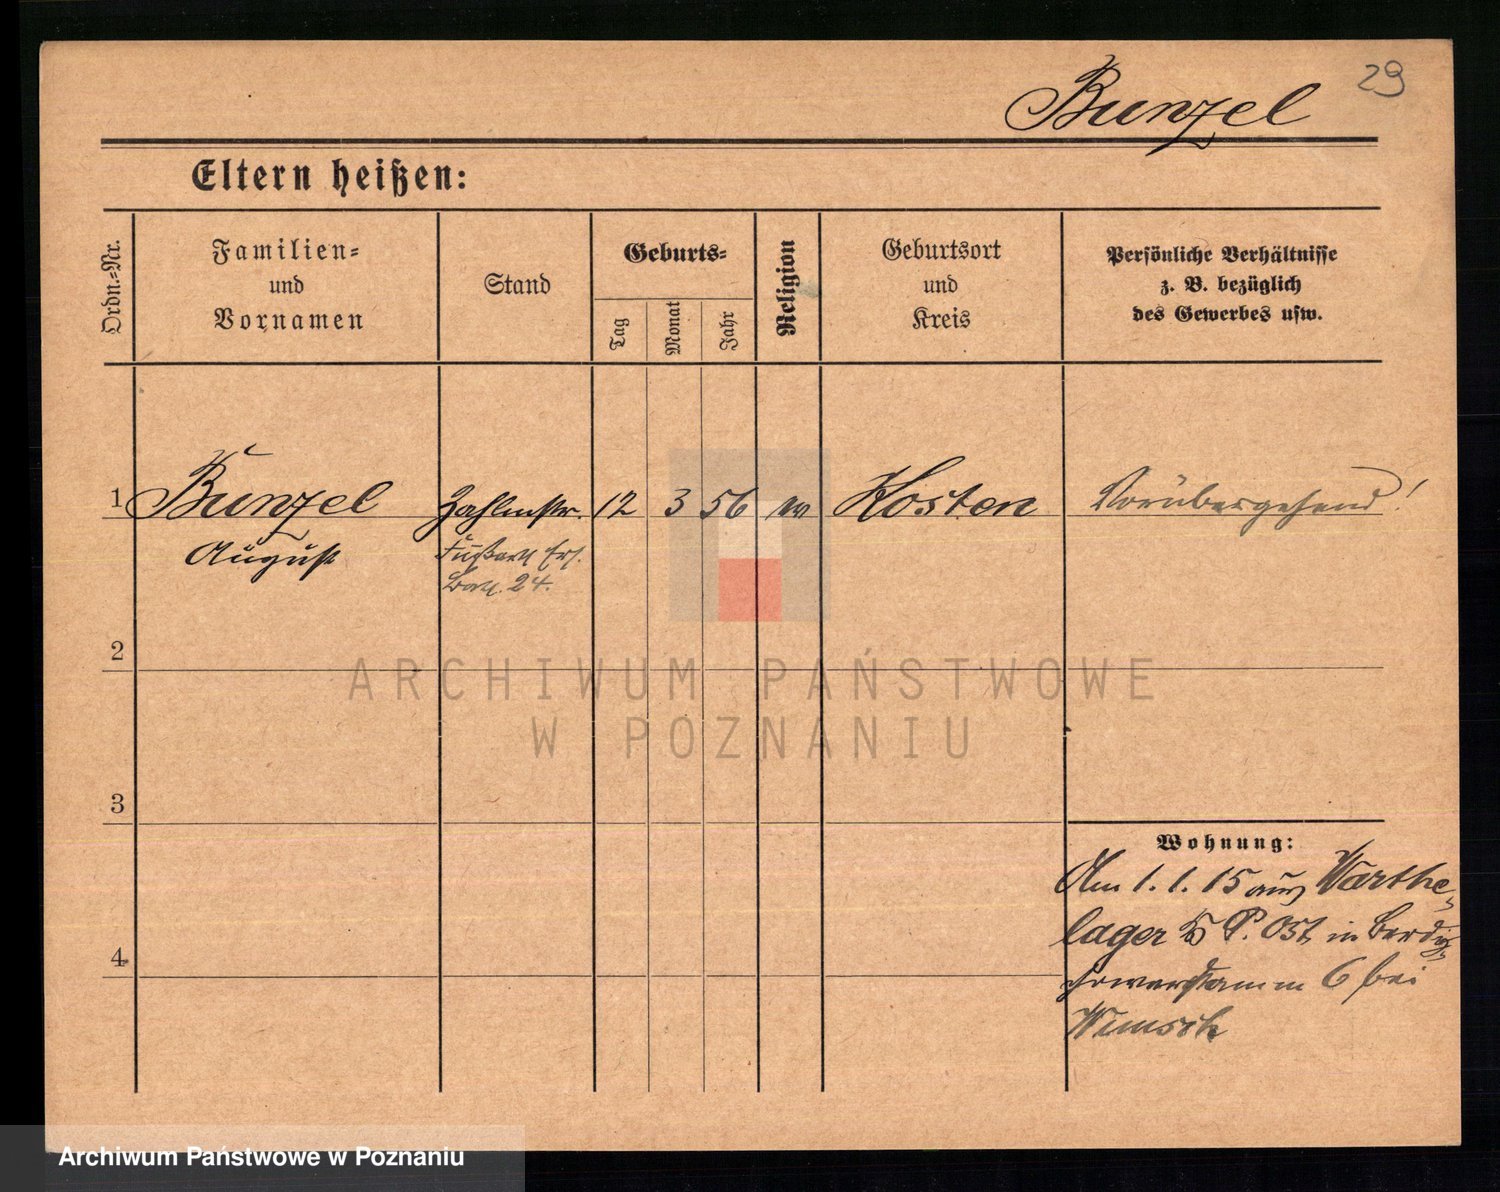 29
Bunzel
Eltern heißen:
Ordn.-Nr.
Familien-
und
Vornamen
Stand
Geburts-
Tag
Monat
Jahr
Religion
Geburtsort
und
Kreis
Persönliche Verhältnisse
z. B. bezüglich
des Gewerbes usw.
1
Bunzel
Zahlmstr.
12
3
56
Kosten
Vorübergehend!
August
Fußart. Ers.
Batl. 24.
2
ARCHIWUM PAŃSTWOWE
W POZNANIU
3
Wohnung:
Am 1. 1. 15 aus Warthe-
lager P. Ost in
4
damm 6 bei
Wunsch
Archiwum Państwowe w Poznaniu